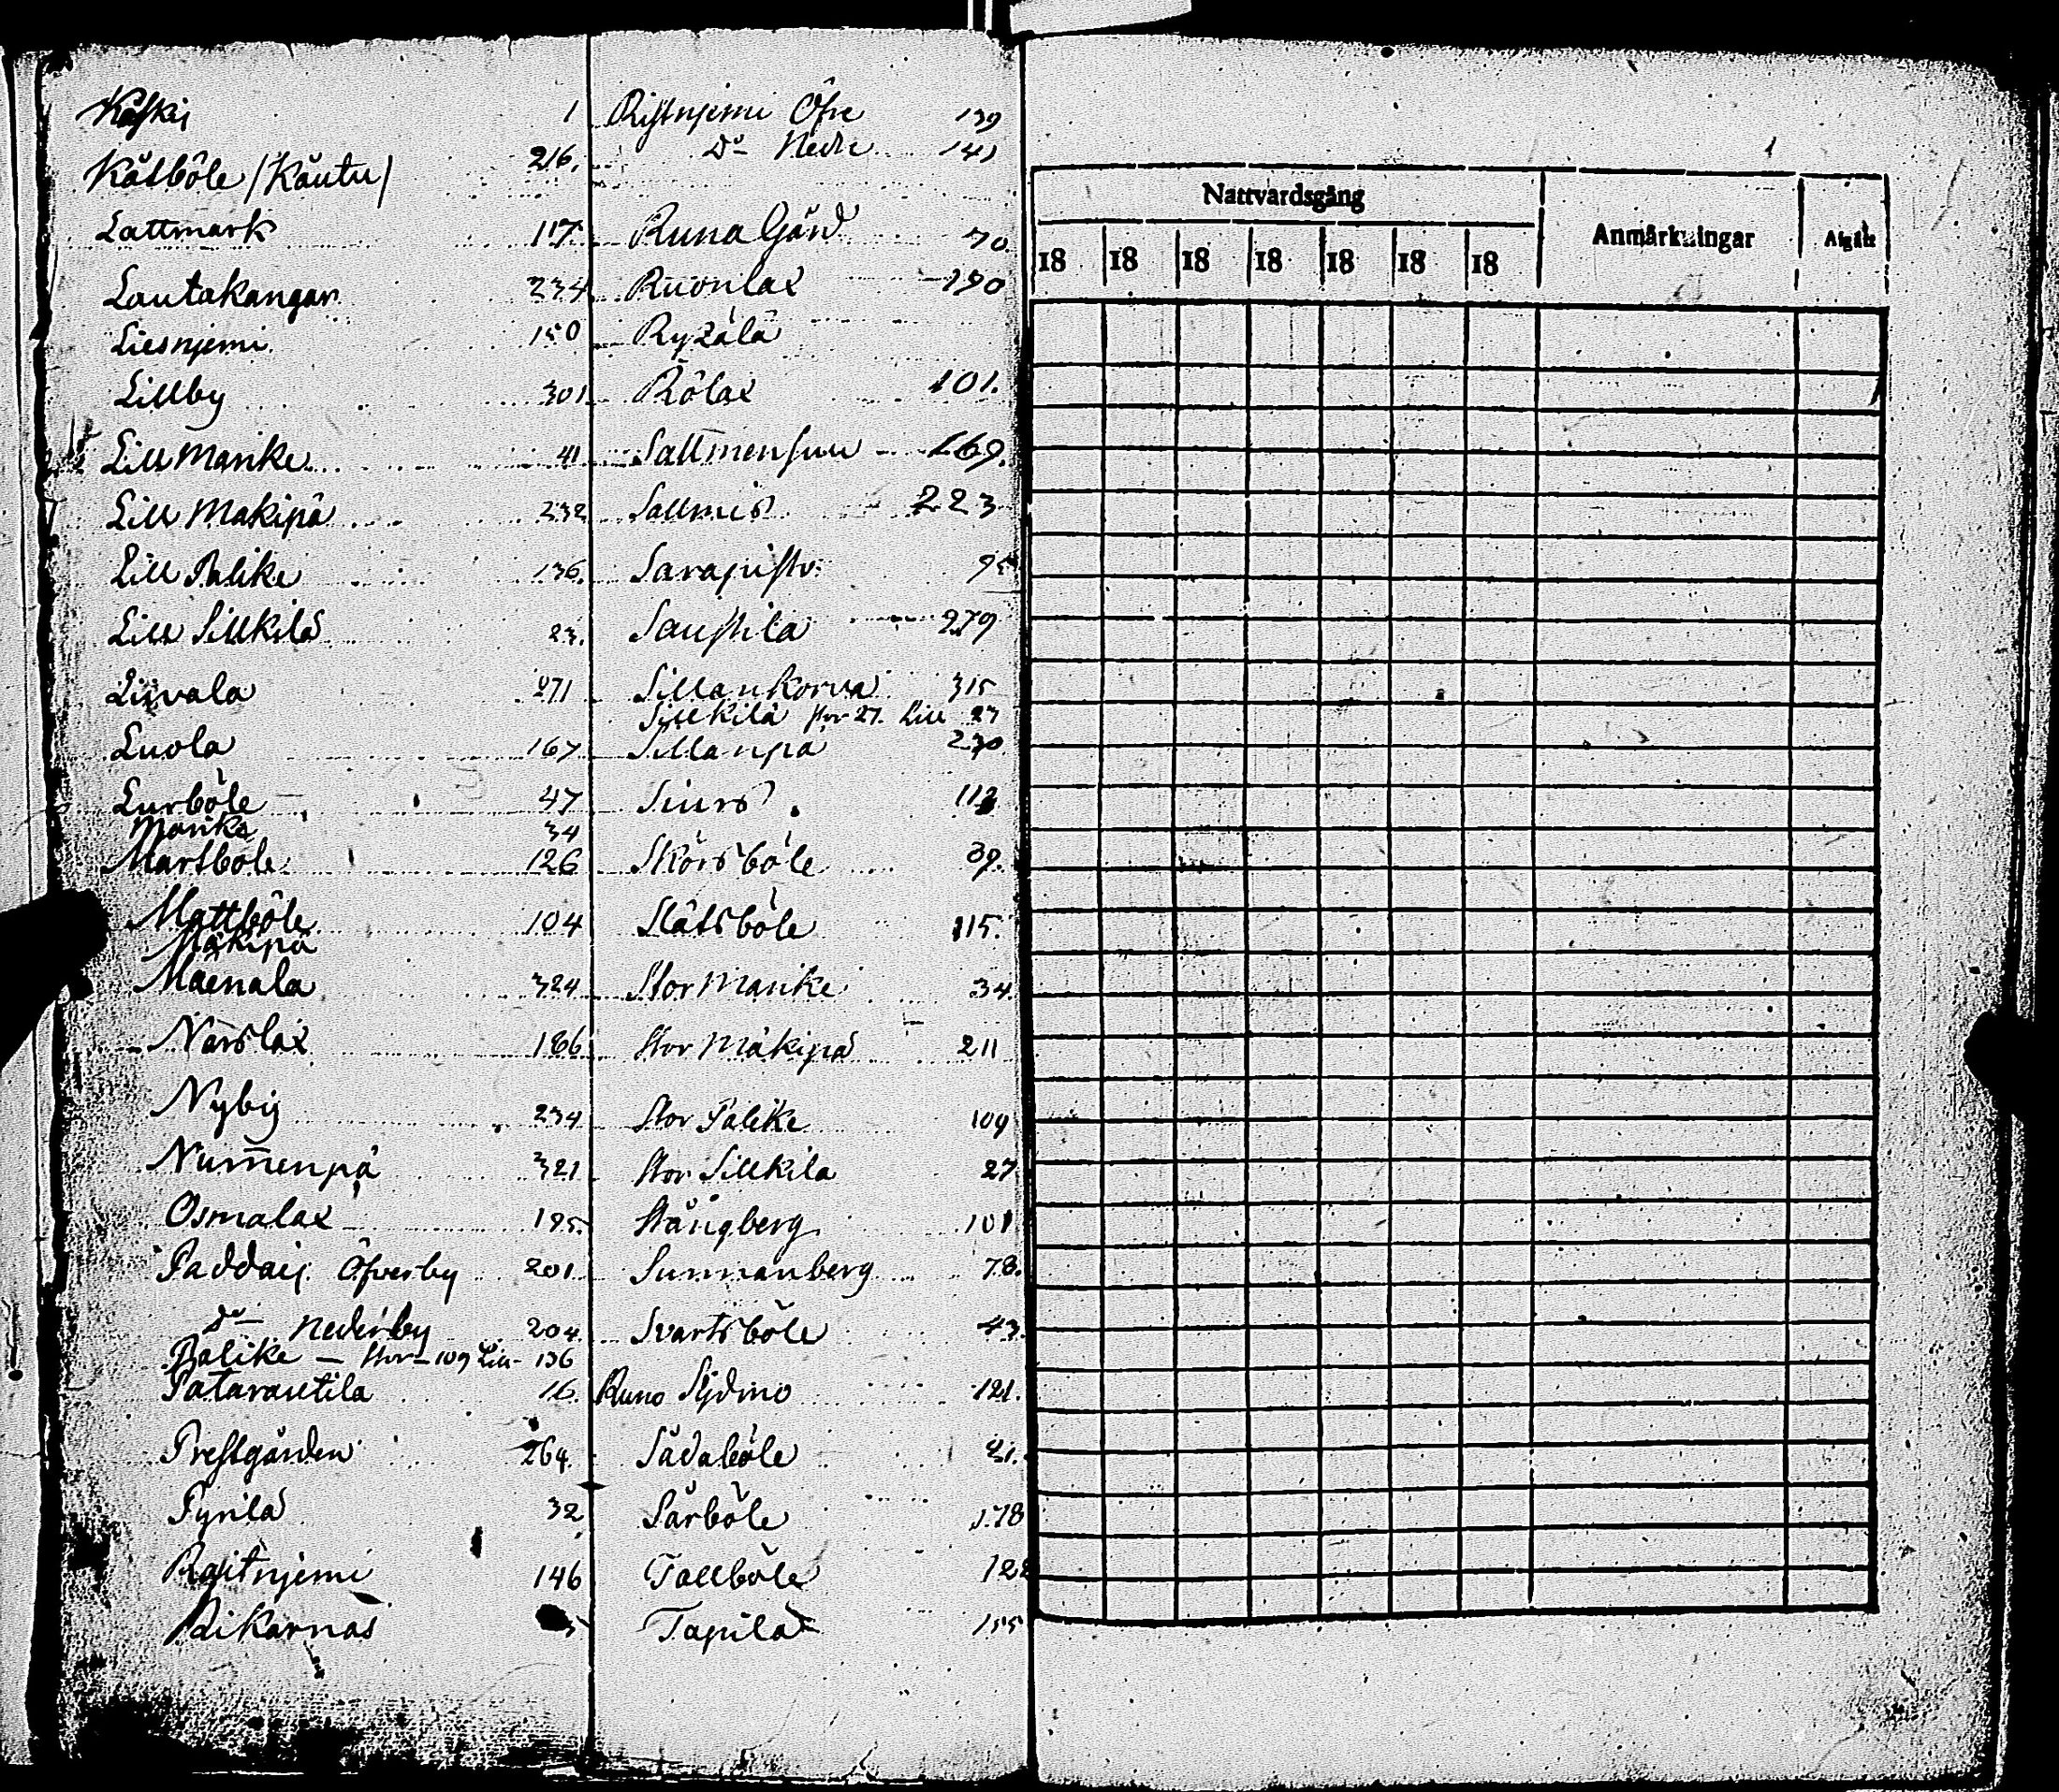 Käfkij 1
Kåtböle /Kåutu/ 216.
Lattmark 117
Lautakangar 234
Liesnjemi 150
Lillby 301
Lill Manike 41
Lill Makipä 232
Lill Palike 136.
Lill Sillkilä 23.
Liivala 271
Luola 167
Lurböle 47
Manike 34
Martböle 126
Mattböle 104
Mäkipä
Mäenala 324
Närslax 186
Nyby 234
Num̅enpä 321
Osmalax 195.
Paddaij Öfverby 201
Do Nederby 204
Palike - Stor - 109 Lill - 136
Patarautila 16
Prestgården 264
Pyrilä 32
Raitnjemi 146
Rikarnäs
Ristnjemi Öfre 139
Do Nedre 141
Runa Gård 70
Ruonlax 190
Ryzälä
Rölax 101.
Sallmensuu 169.
Sallmis 223
Sarapisto 95
Saustila 279
Sillankorva 315
Sillkilä stor 27. Lill 23
Sillanpä 230
Siurs 112
Skörsböle 39.
Slätsböle 115.
Stor Manike 34
Stor Mäkipä 211
Stor Palike 109
Stor Sillkila 27
Stångberg 101
Sunnanberg 78.
Svartsböle 43.
Runo Sydmo 121.
Sådaböle 21.
Särböle 178
Tallböle 122
Tapila 155
Nattvardsgång Anmärkningar Afgått
18 18 18 18 18 18 18